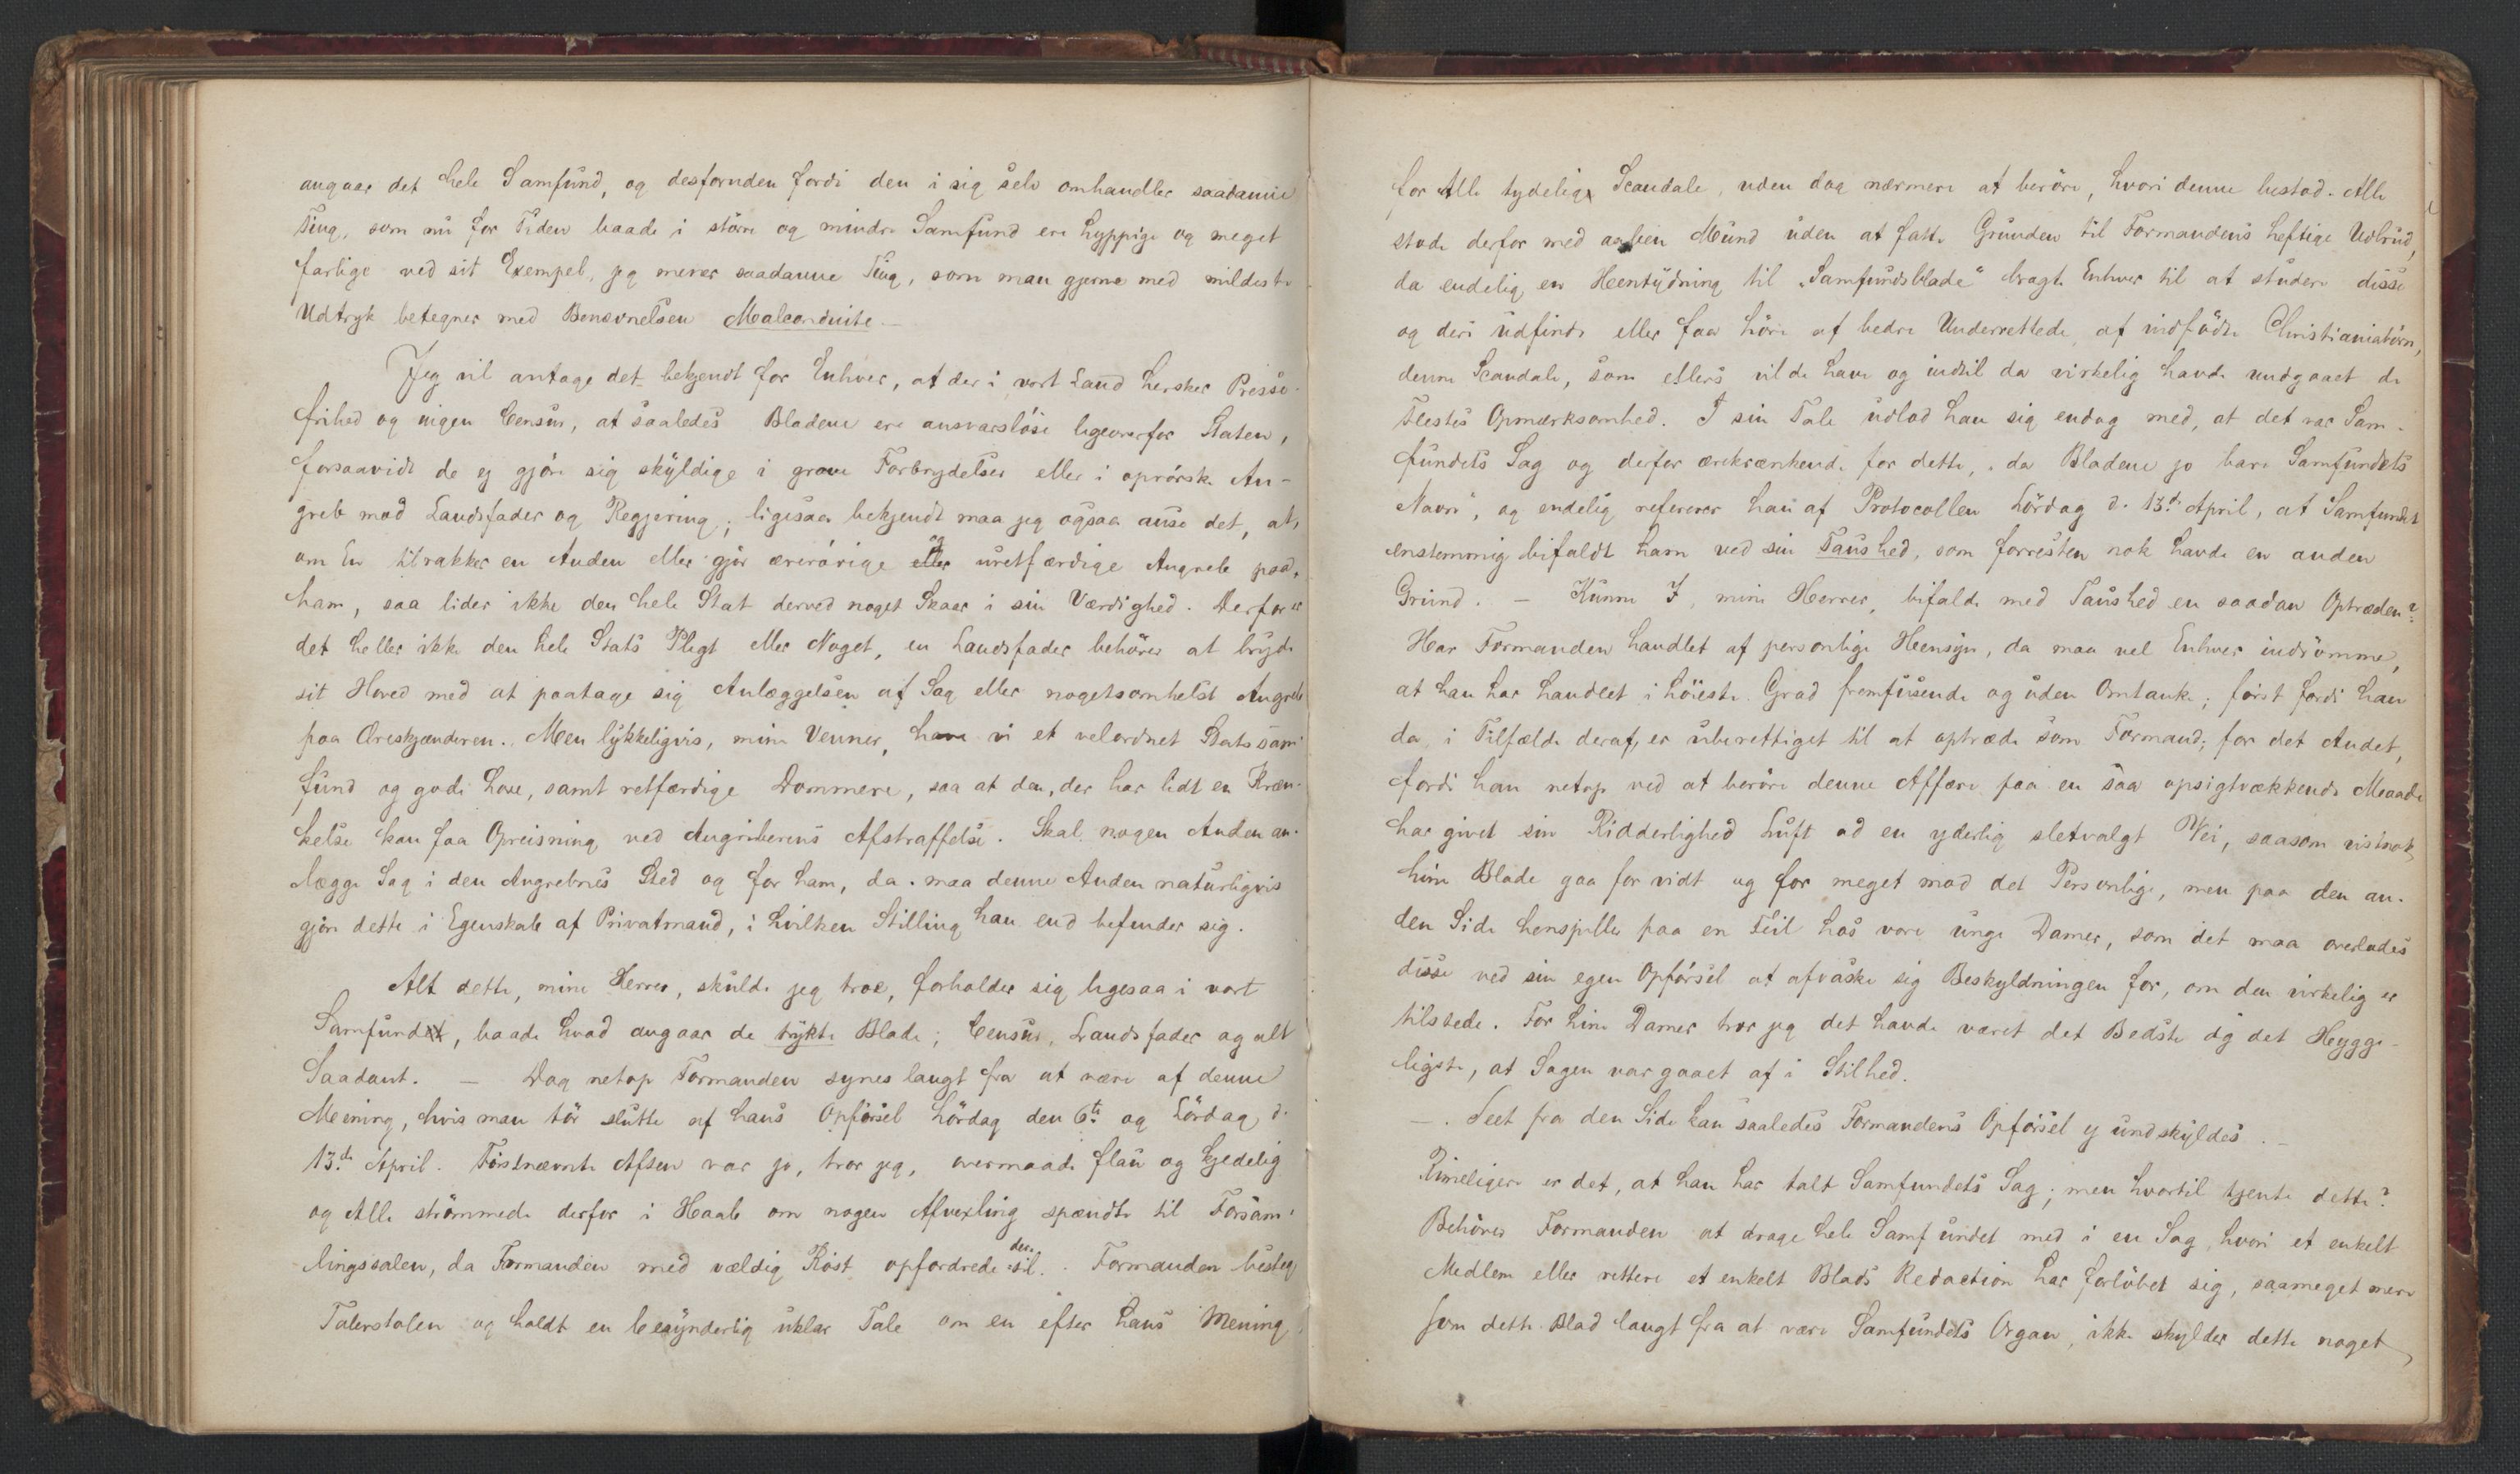 angaar det hele Samfund, og desforuden fordi den i sig selv omhandler saadanne
Ting, som nu for Tiden baade i större og mindre Samfund ere hyppige og meget
farlige ved sit Exempel, jeg mener saadanne Ting, som man gjerne med mildeste
Udtryk betegner med Benævnelsen Malconduite. —
Jeg vil antage det bekjendt for Enhver, at der i vort Land hersker Presse-
frihed og ingen Censur, at saaledes Bladene ere ansvarslöse ligeoverfor Staten,
forsaavidt de ej gjöre sig skyldige i grove Forbrydelser eller i oprörske An-
greb mod Landsfader og Regjering; ligesaa bekjendt maa jeg ogsaa anse det, at,
om En tilrakker en Anden eller gjör ærerörige og uretfærdige Angreb paa
ham, saa lider ikke den hele Stat derved noget Skaar i sin Værdighed. Derfor er
det heller ikke den hele Stats Pligt eller Noget, en Landsfader behöver at bryde
sit Hoved med at paatage sig Anlæggelsen af Sag eller nogetsomhelst Angreb
paa Æreskjænderen. Men lykkeligvis, mine Venner, have vi et velordnet Statssam-
fund og gode Love, samt retfærdige Dommere, saa at den, der har lidt en Kræn-
kelse kan faa Opreisning ved Angriberens Afstraffelse. Skal nogen Anden an-
lægge Sag i den Angrebnes Sted og for ham, da maa denne Anden naturligvis
gjöre dette i Egenskab af Privatmand, i hvilken Stilling han end befinder sig.
Alt dette, mine Herrer, skulde jeg troe, forholder sig ligesaa i vort
Samfund, baade hvad angaar de trykte Blade; Censur, Landsfader og alt
Saadant. — Dog netop Formanden synes langt fra at være af denne
Mening, hvis man tör slutte af hans Opförsel Lördag den 6te og Lördag d.
13de April. Förstnævnte Aften var jo, tror jeg, overmaade flau og kjedelig
og Alle strömmede derfor i Haab om nogen Afvexling spændte til Forsam-
lingssalen, da Formanden med vældig Röst opfordrede dertil. Formanden besteg
Talerstolen og holdt en besynderlig uklar Tale om en efter hans Mening
for Alle tydelig Scandale, uden dog nærmere at beröre, hvori denne bestod. Alle
stode derfor med aaben Mund uden at fatte Grunden til Formandens heftige Udbrud,
da endelig en Heentydning til „Samfundsblade“ bragte Enhver til at studere disse
og deri udfinde eller faa höre af bedre Underrettede, af indfödte Christianiabörn,
denne Scandale, som ellers vilde have og indtil da virkelig havde undgaaet de
Flestes Opmærksomhed. I sin Tale udlod han sig endog med, at det var Sam-
fundets Sag og derfor ærekrænkende for dette, „da Bladene jo bare Samfundets
Navn“, og endelig refererer han af Protocollen Lördag d. 13de April, at Samfundet
enstemmig bifaldt ham ved sin Taushed, som forresten nok havde en anden
Grund. — Kunne I, mine Herrer, bifalde med Taushed en saadan Optræden?
Har Formanden handlet af personlige Heensyn, da maa vel Enhver indrömme,
at han har handlet i höieste Grad fremfusende og uden Omtanke; först fordi han
da, i Tilfælde deraf, er uberettiget til at optræde som Formand; for det Andet,
fordi han netop ved at beröre denne Affære paa en saa opsigtvækkende Maade
har givet sin Ridderlighed Luft ad en yderlig sletvalgt Vei, saasom vistnok
hine Blade gaa for vidt og for meget mod det Personlige, men paa den an-
den Side henspiller paa en Feil hos vore unge Damer, som det maa overlades
disse ved sin egen Opförsel at afvaske sig Beskyldningen for, om den virkelig er
tilstede. For hine Damer tror jeg det havde været det Bedste og det Hygge-
ligste, at Sagen var gaaet af i Stilhed.
— . Seet fra den Side kan saaledes Formandens Opförsel ej undskyldes. —
Rimeligere er det, at han har talt Samfundets Sag; men hvortil tjente dette?
Behöver Formanden at drage hele Samfundet med i en Sag, hvori et enkelt
Medlem eller rettere et enkelt Blads Redaction har forlöbet sig, saameget mere
som dette Blad langt fra at være Samfundets Organ, ikke skylder dette noget